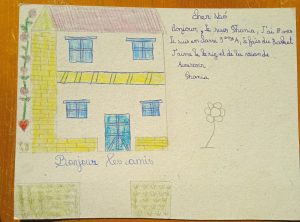 Cher
Bonjour, je suis Shania, J'ai 8 ans
Je suis en classe 3ème A, je fais du Basket
J'aime le riz et de la viande
Aurevoir
Shania
Bonjour les amis